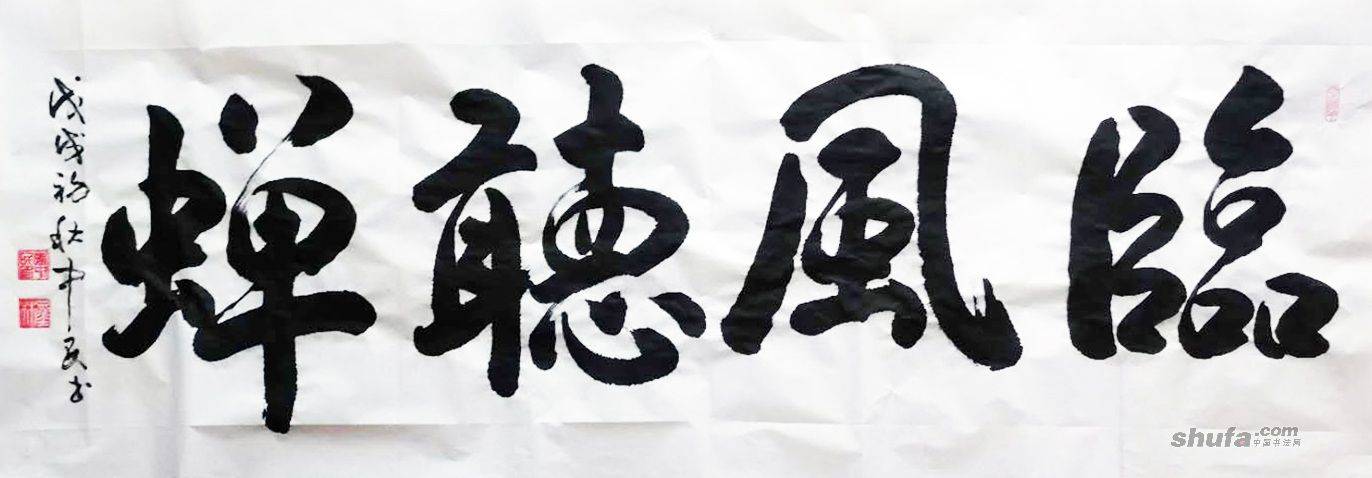 臨風聽蟬
戊戌初秋中民书
shufa.com
中国书法网